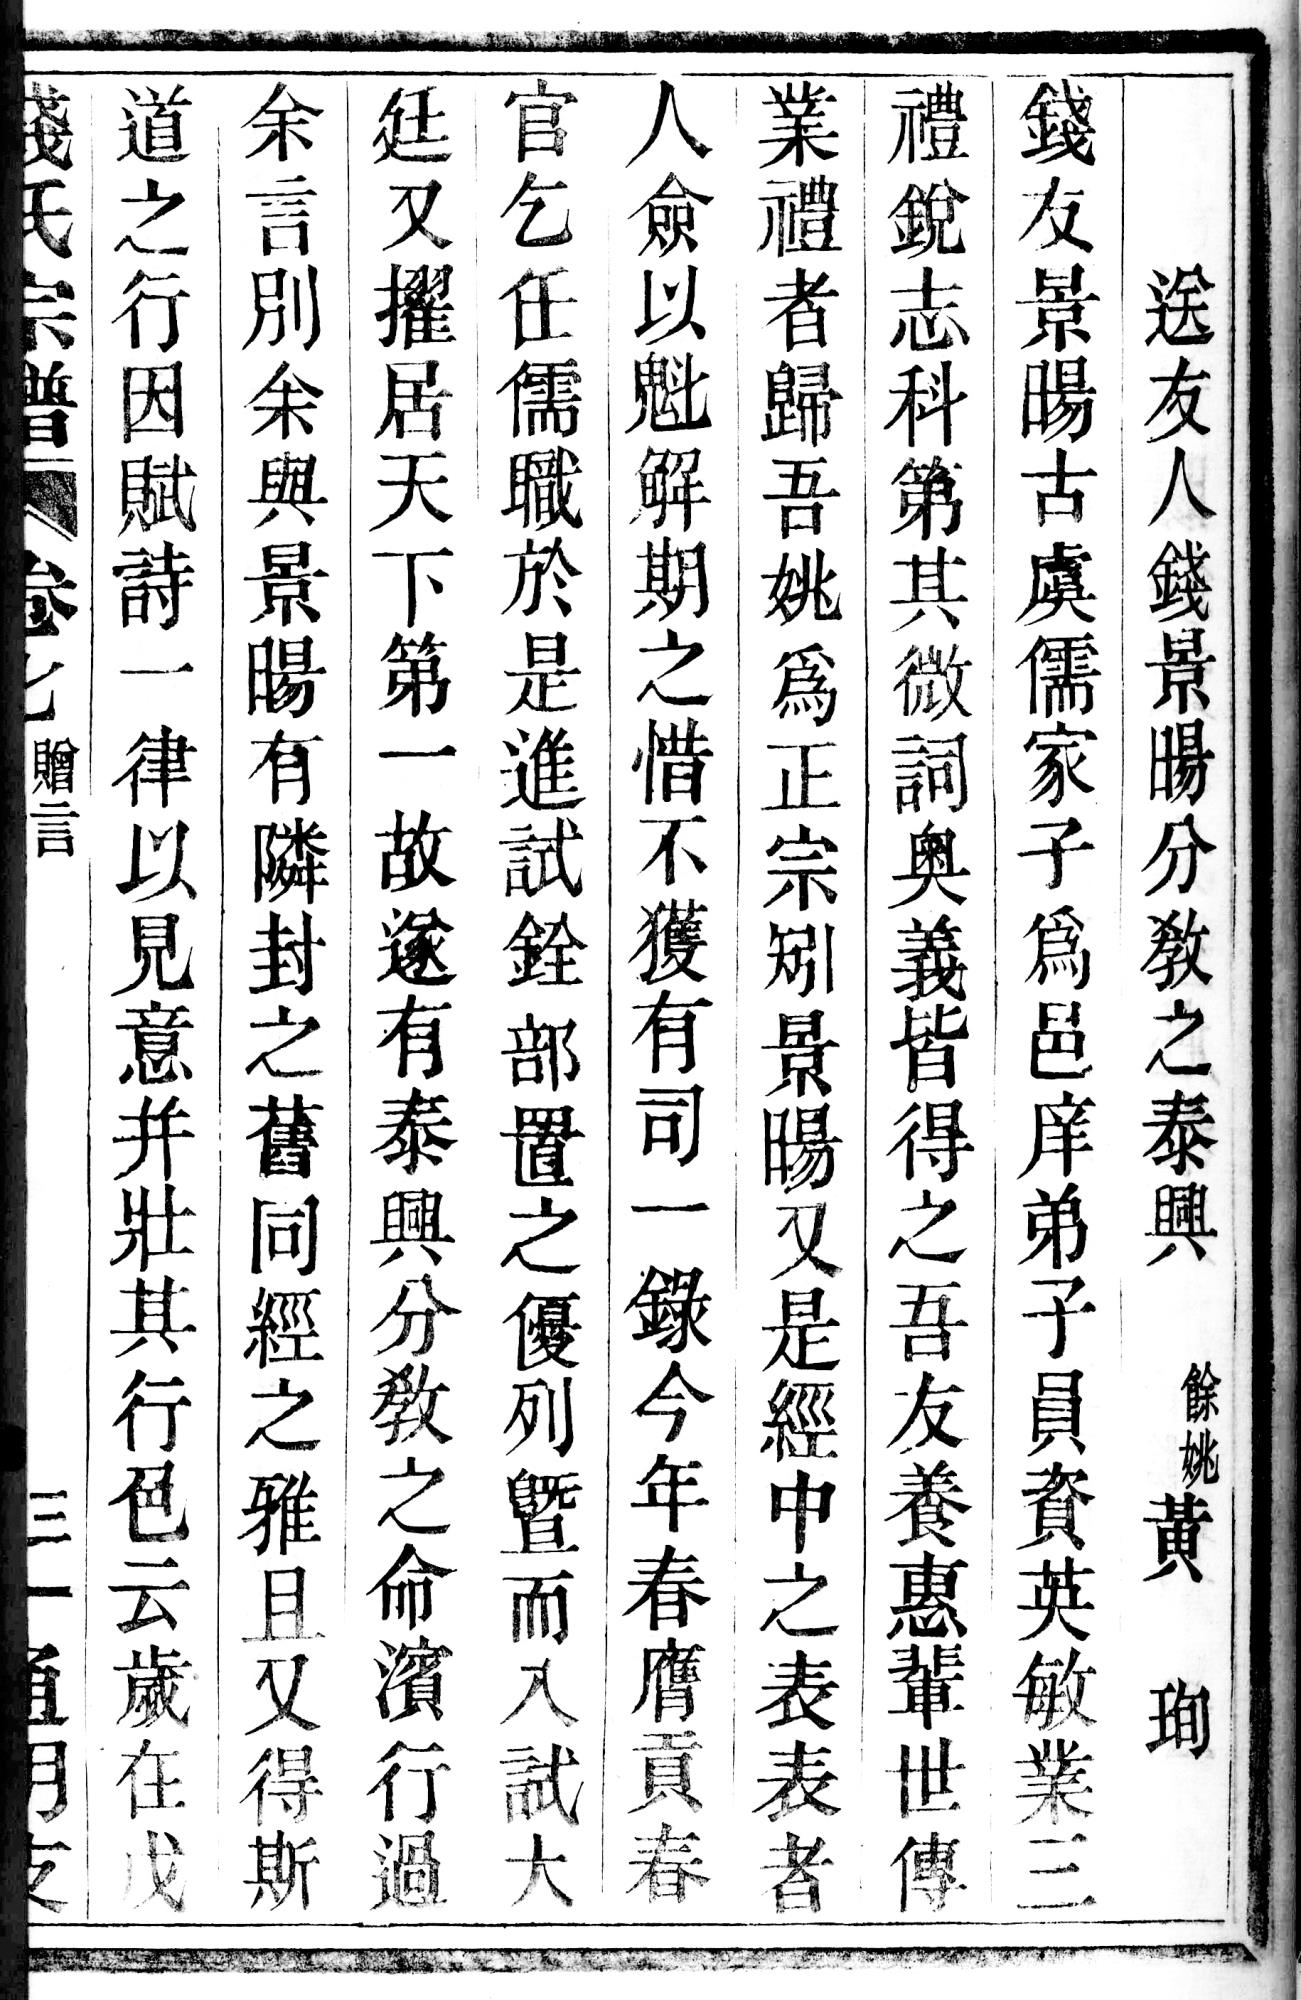 送友人錢景暘分敎之泰興 餘姚黃 珣
錢友景暘古虞儒家子爲邑庠弟子員資英敏業三
禮銳志科第其微詞奧義皆得之吾友養惠輩世傳
業禮者歸吾姚爲正宗矧景暘又是經中之表表者
人僉以魁解期之惜不獲有司一錄今年春膺貢春
官乞任儒職於是進試銓部置之優列曁而入試大
廷又擢居天下第一故遂有泰興分敎之命濱行過
余言別余與景暘有隣封之舊同經之雅且又得斯
道之行因賦詩一律以見意幷壯其行色云歲在戊
錢氏宗譜 卷七 贈言 三一 通明支